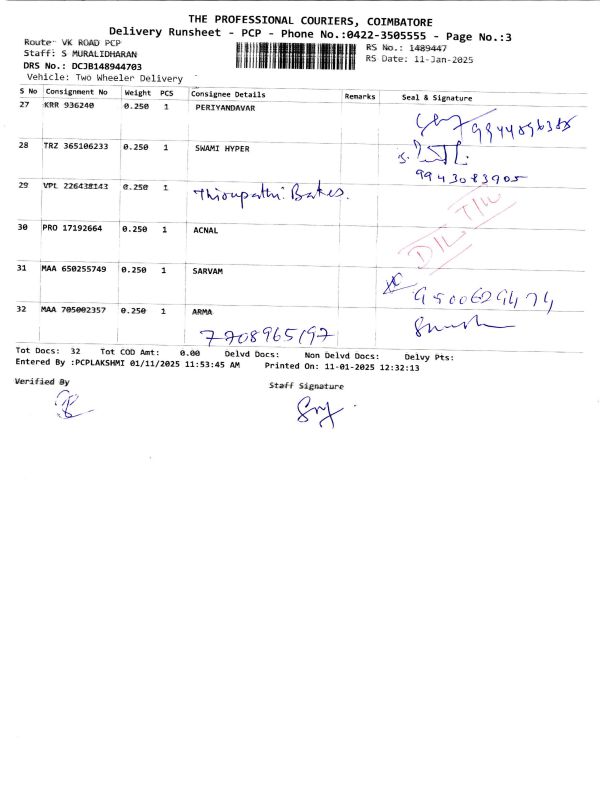 THE PROFESSIONAL COURIERS, COIMBATORE
Delivery Runsheet - PCP - Phone No.:0422-3505555 - Page No.:3
Route: VK ROAD PCP
RS No.: 1489447
Staff: S MURALIDHARAN
RS Date: 11-Jan-2025
DRS No.: DCJB148944703
Vehicle: Two Wheeler Delivery
S No Consignment No Weight PCS Consignee Details Remarks Seal & Signature
27 KRR 936240 0.250 1 PERIYANDAVAR
28 TRZ 365106233 0.250 1 SWAMI HYPER
9943083905
29 VPL 226438143 0.250 1 Thirupathi Bakes.
30 PRO 17192664 0.250 1 ACNAL
D/L T/L
31 MAA 650255749 0.250 1 SARVAM
9500629474
32 MAA 705002357 0.250 1 ARMA
7708965197
Tot Docs: 32 Tot COD Amt: 0.00 Delvd Docs: Non Delvd Docs: Delvy Pts:
Entered By :PCPLAKSHMI 01/11/2025 11:53:45 AM Printed On: 11-01-2025 12:32:13
Verified By Staff Signature